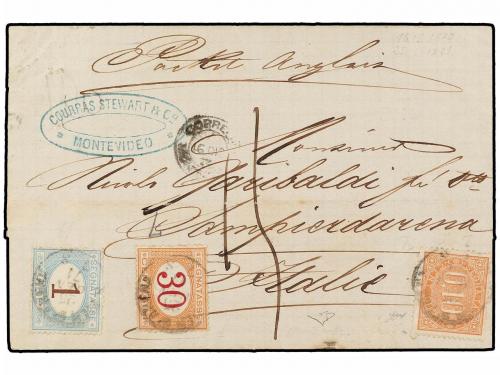 Packet Anglais
COURRAS STEWART & Co.
MONTEVIDEO
CORREO
Monsieur
Nicolo Garibaldi
Sampierdarena
Italie
1
SEGNATASSE
30
SEGNATASSE
O,10